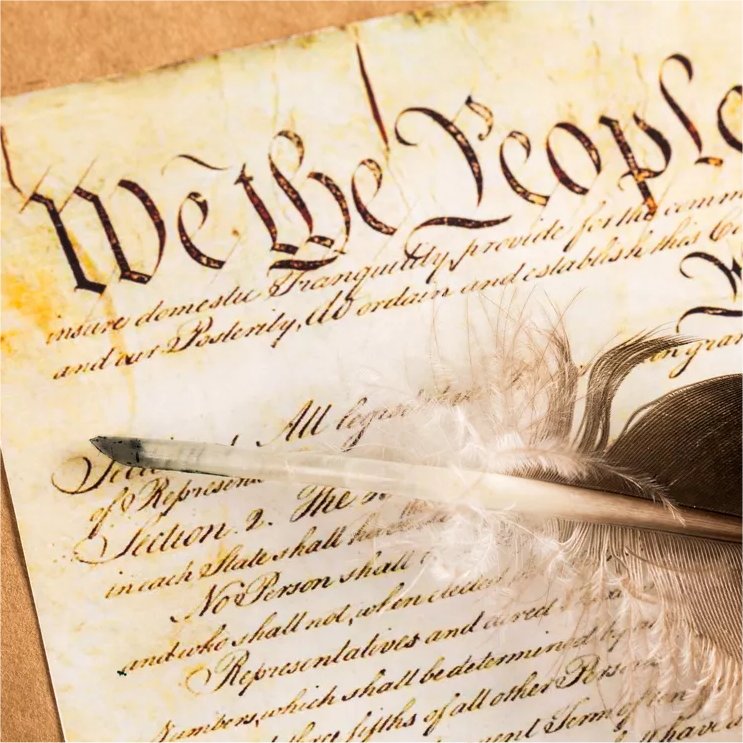 We the People
insure domestic Tranquility, provide for the comm
and our Posterity, do ordain and establish this Co
All legis
of Represen
Section. 2. The
in each State shall ha
No Person shall
and who shall not, when elected
Representatives and
Numbers, which shall be determined by a
three fifths of all other Perso